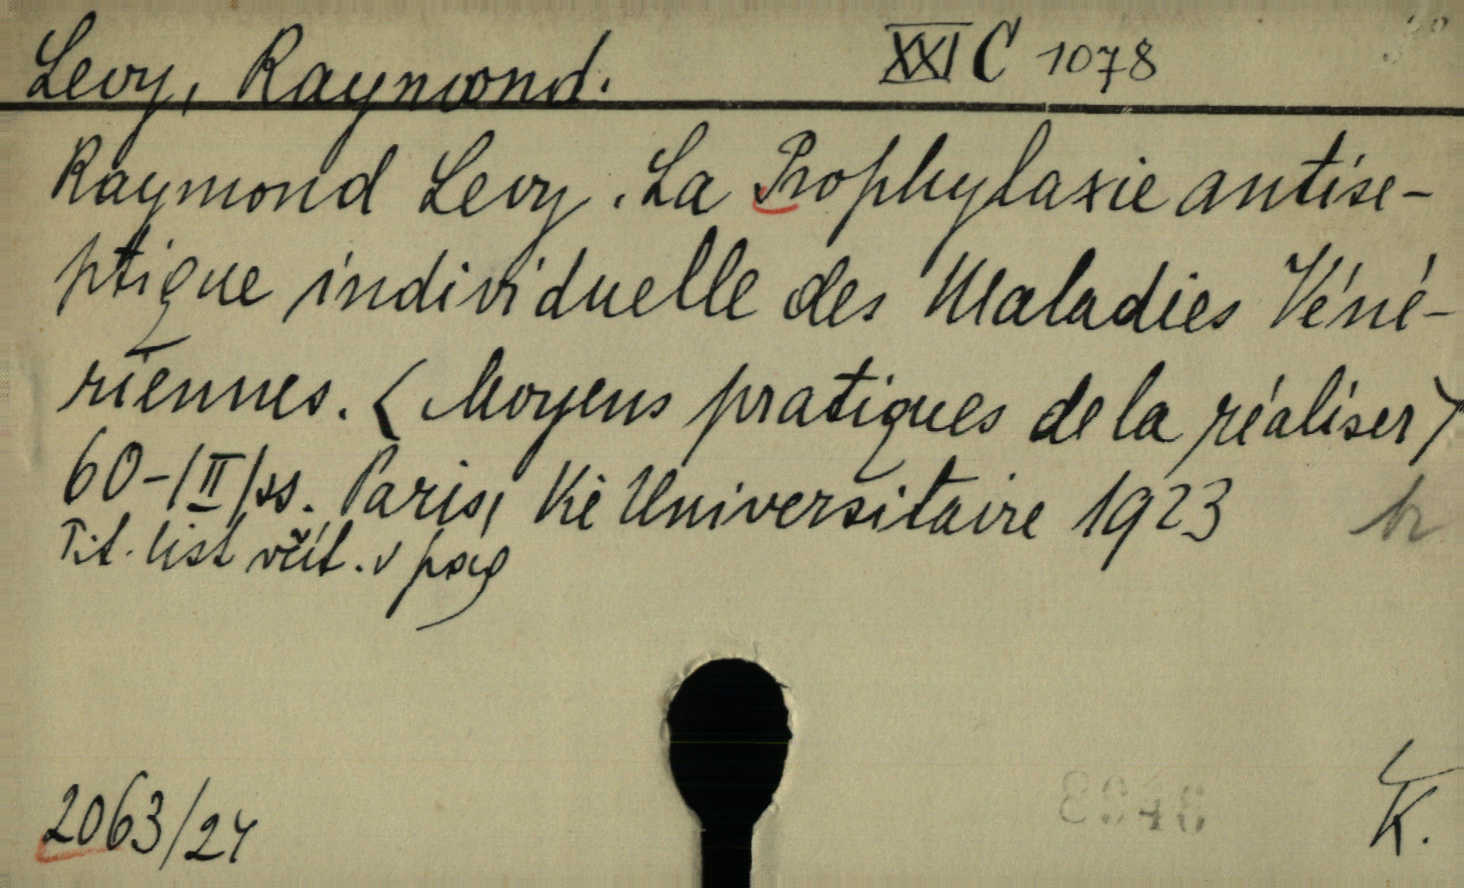 Levy, Raymond. XXI C 1078
Raymond Levy. La Prophylaxie antise-
ptique individuelle des Maladies Véné-
riennes. (Moyens pratiques de la réaliser)
60-/II/ss. Paris, Vie Universitaire 1923
Tit. list včít. v pag
2063/24
K.